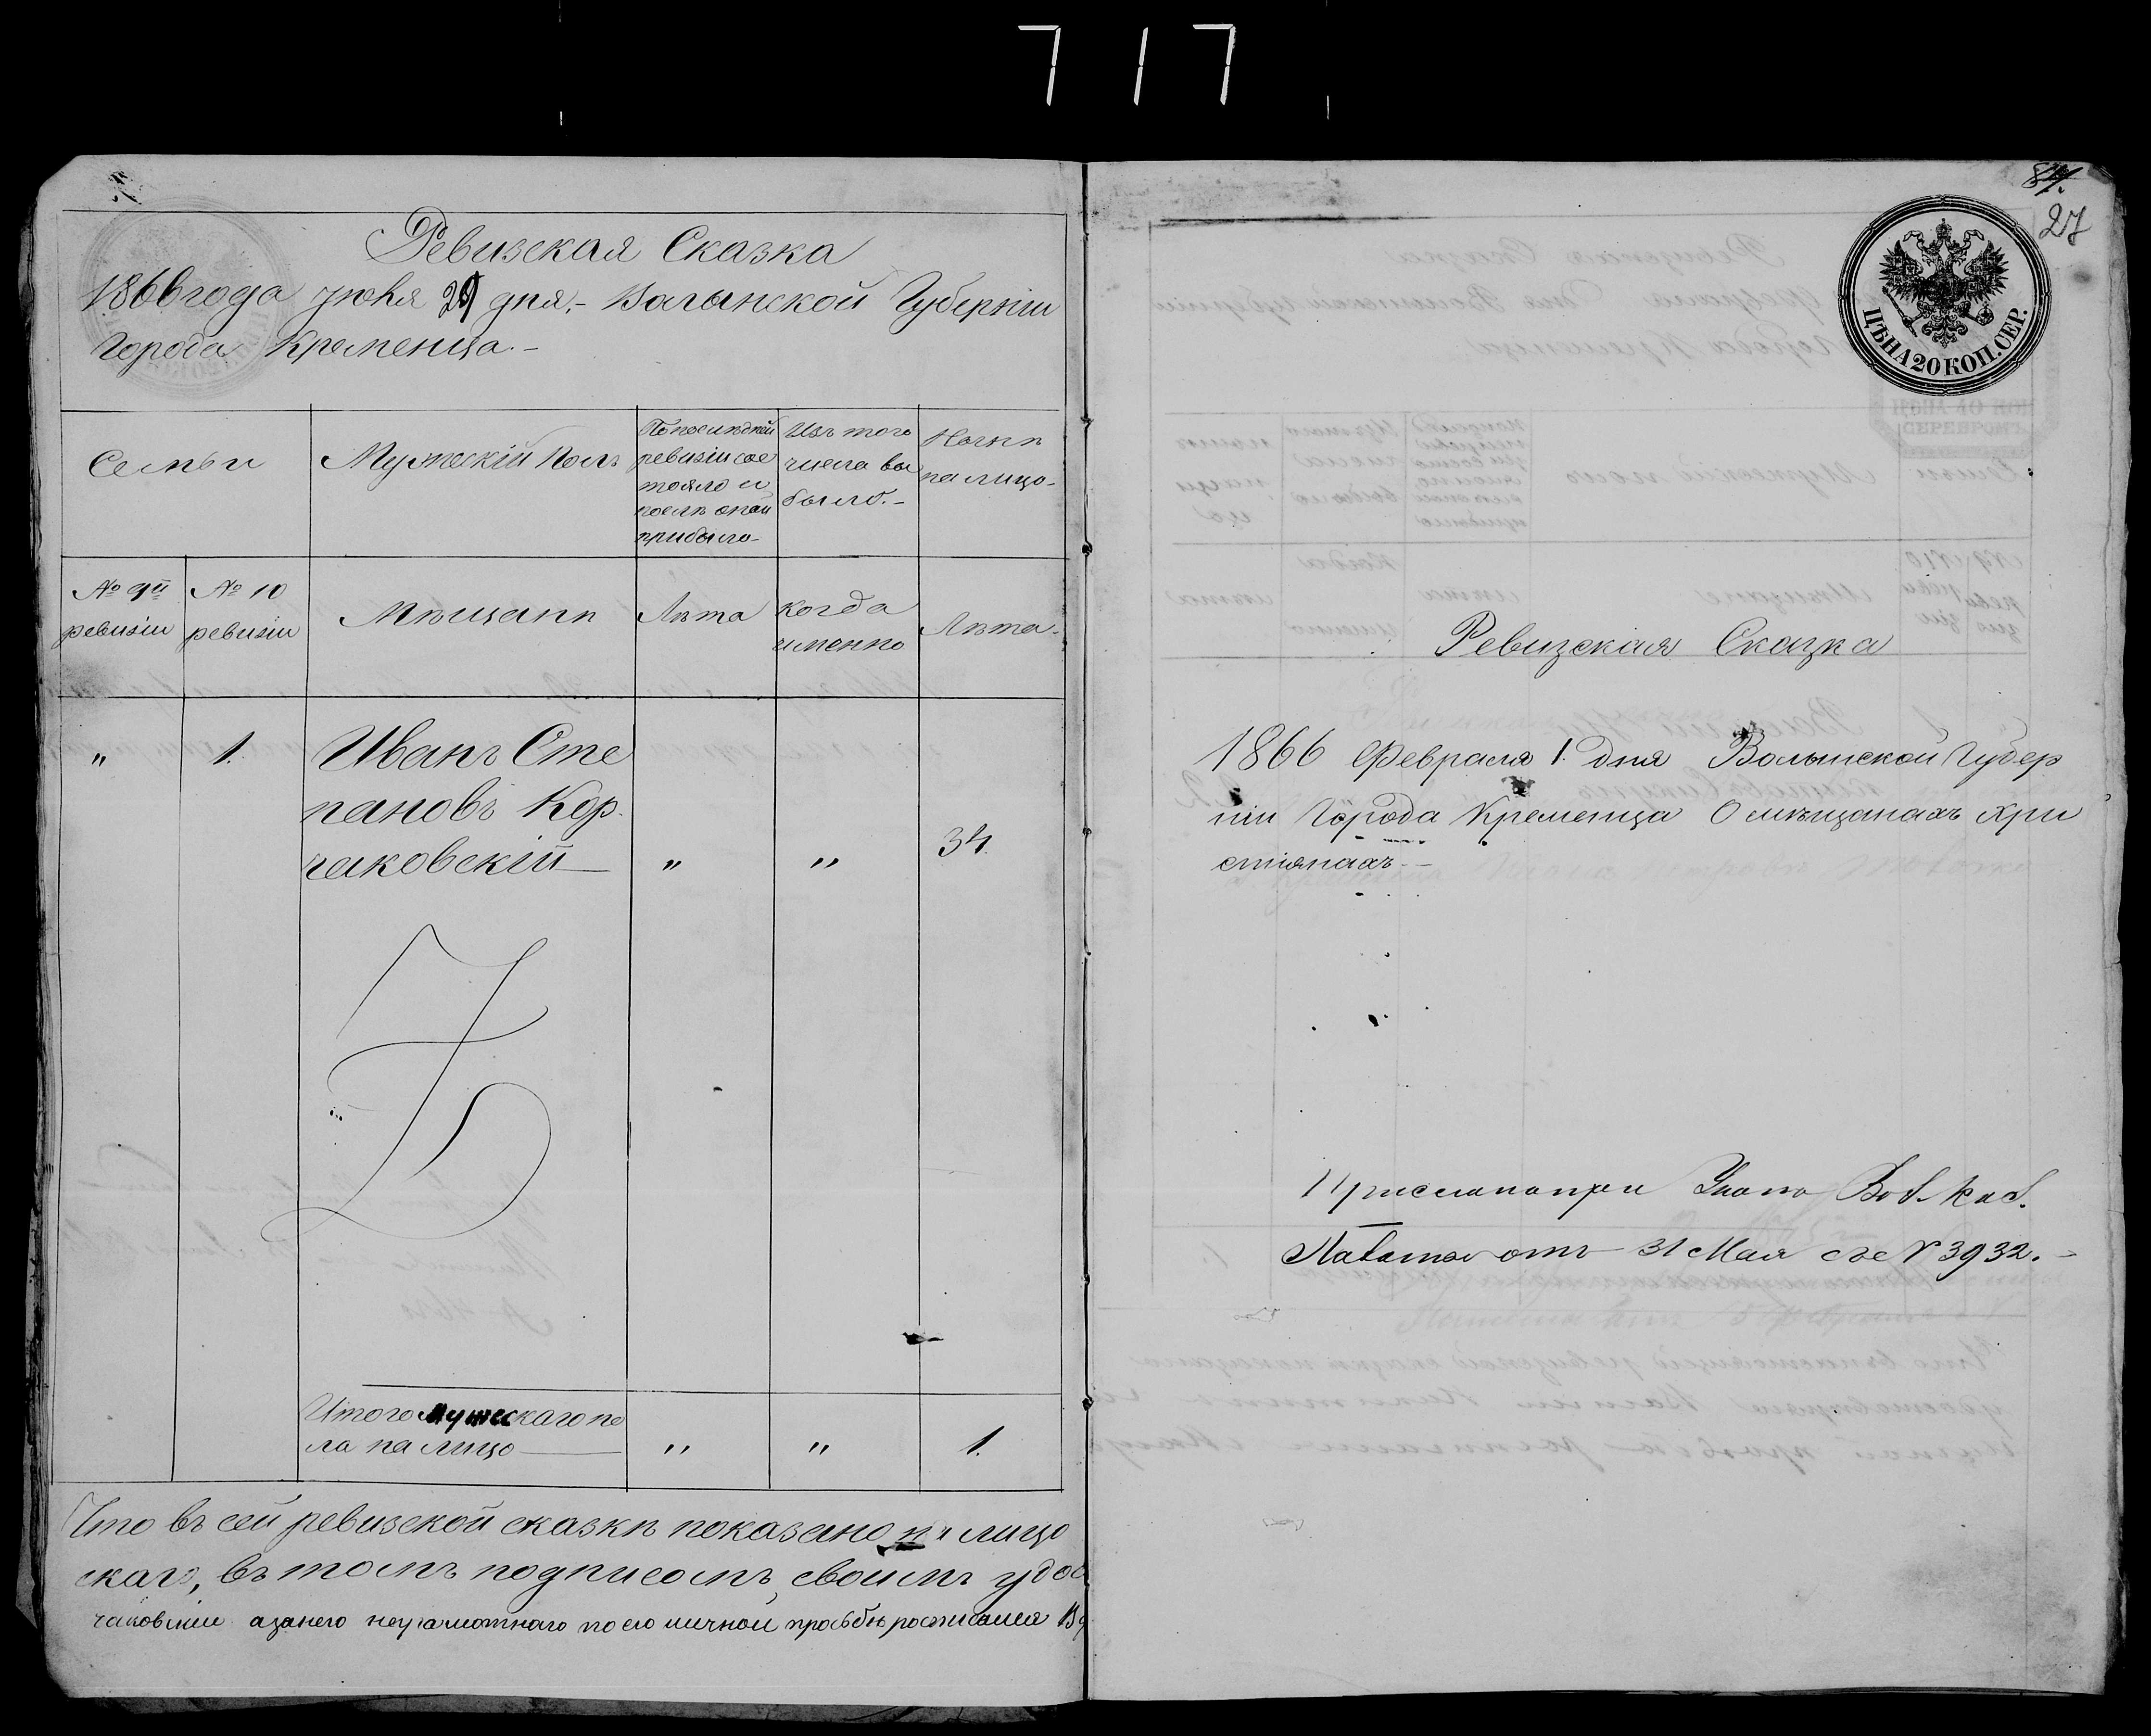 717
Ревизская Сказка
1866 года июня 29 дня.- Волынской Губерніи
Города Кременца.-
Семьи
Мужескій полъ
По последней
ревизіи сос
тояло и
послѣ оной
прибыло
Изъ того
числа вы
было.-
Нынѣ
на лицо-
№ 9й
ревизіи
№ 10
ревизіи
Мѣщанѣ
Лѣта
когда
именно
Лѣта-
" 1. Иванъ Сте
пановъ Кор
чаковскій — " " 34.
Итого мужескаго по
ла на лицо — " " 1.
Что въ сей ревизской сказкѣ показано на лицо
скаго, въ томъ подписомъ своимъ удос
чаковскій а за него неграмотнаго по его личной просьбѣ росписался
84.
27
ЦѢНА 20 КОП. СЕР.
Ревизская Сказка
1866 Февраля 1 дня Волынской Губер
ніи Города Кременца О мѣщанахъ хри
стіянахъ.-
при
отъ 31 Мая с. г. № 3932.-